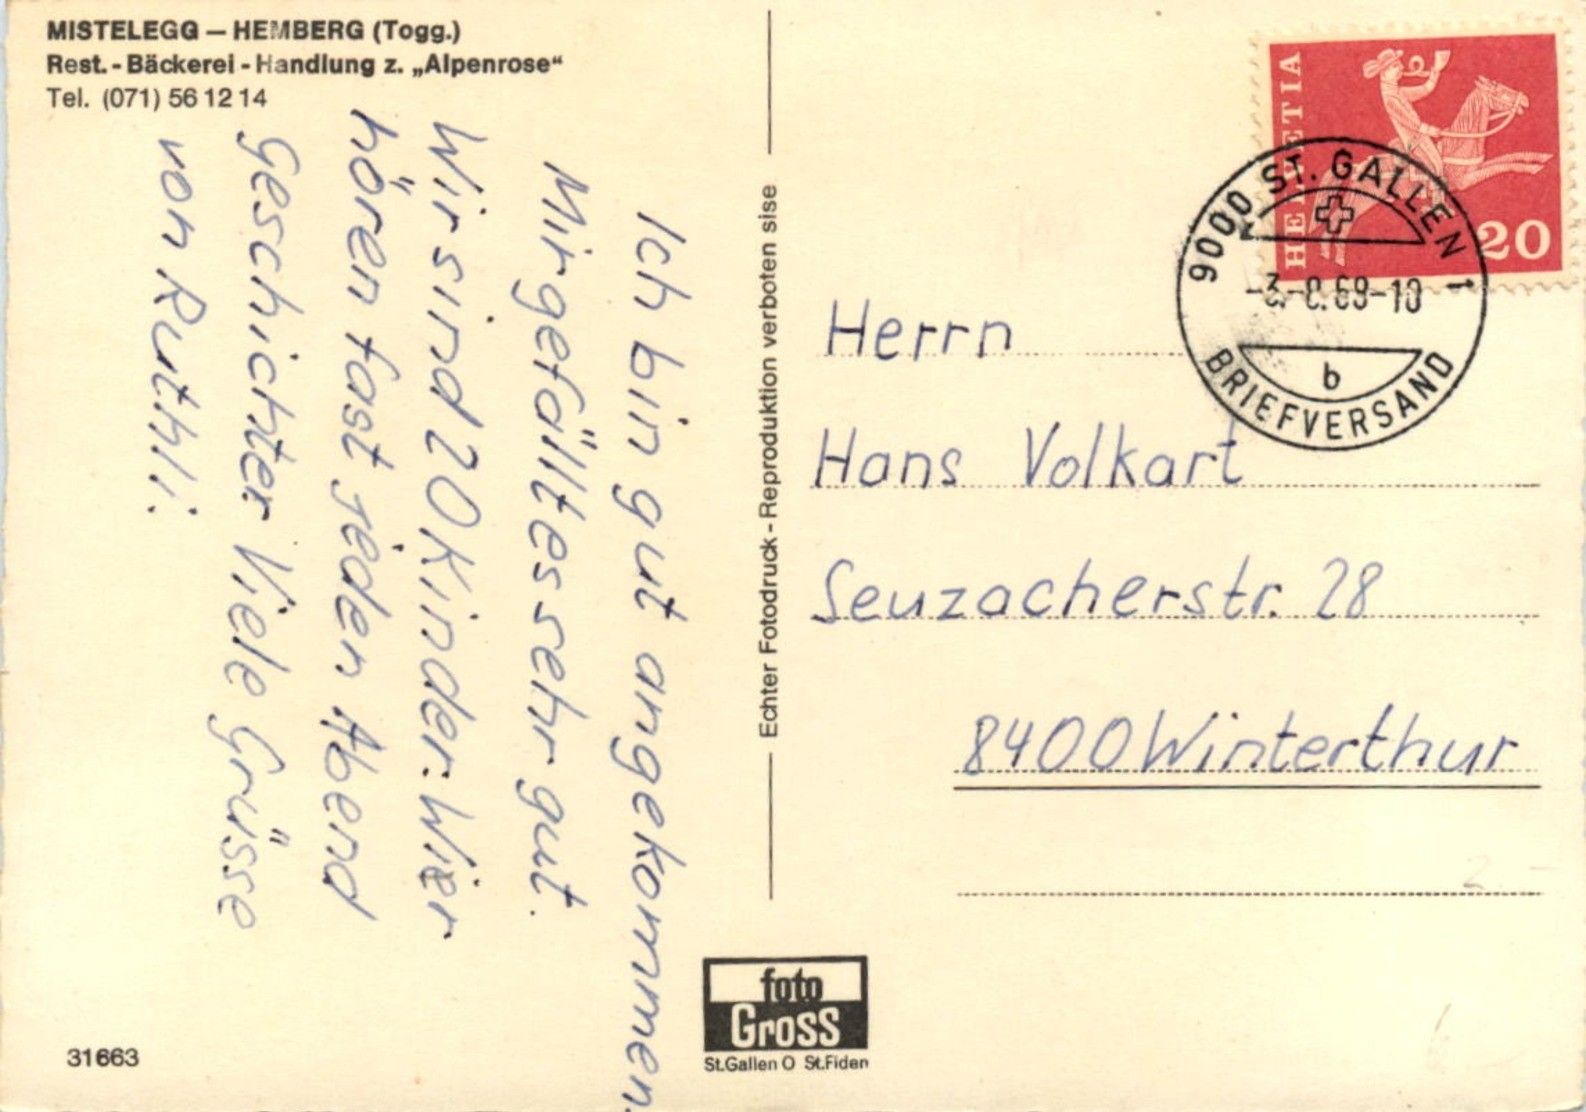 MISTELEGG – HEMBERG (Togg.)
Rest. - Bäckerei - Handlung z. „Alpenrose“
Tel. (071) 56 12 14
Ich bin gut angekommen.
Mir gefällt es sehr gut.
Wir sind 20 Kinder. Wier
hören fast jeden Abend
Geschichten Viele Grüsse
von Ruthli
Echter Fotodruck - Reproduktion verboten sise
HELVETIA
20
9000 ST. GALLEN 1
BRIEFVERSAND
b
Herrn
Hans Volkart
Seuzacherstr. 28
8400 Winterthur
foto
Gross
St.Gallen O St.Fiden
31663